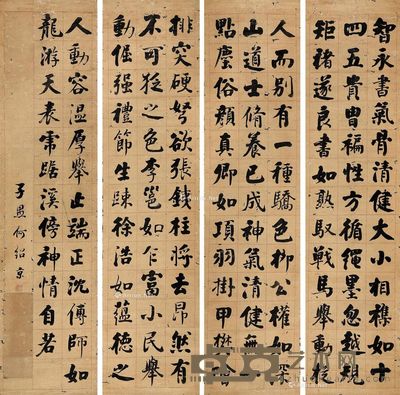 智永書氣骨清健大小相襍如十
四五貴冑褊性方循繩墨忽越規
矩褚遂良書如熟馭戰馬舉動從
人而別有一種驕色柳公權如深
山道士脩養已成神氣清健無一
點塵俗顏真卿如項羽掛甲樊噲
排突硬弩欲張鐵柱將立昂然有
不可犯之色李邕如乍富小民舉
動倔强禮節生踈徐浩如蘊德之
人動容溫厚舉止端正沈傳師如
龍游天表虎踞溪傍神情自若
子愚何紹京